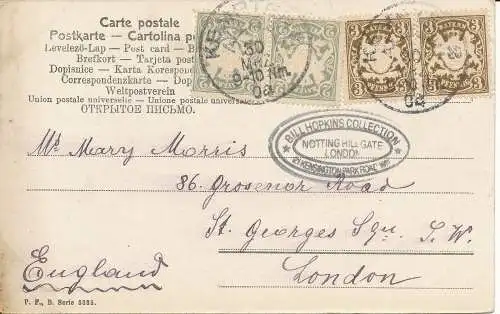 Carte postale
Postkarte - Cartolina po
Levelező-Lap - Post card - B
Brefkort - Tarjeta post
Dopisnice - Karta Korespond
Correspondenzkarte
Weltpostverein
Union postale universelle - Unione postale universale
ОТКРЫТОЕ ПИСЬМО.
KEMPTEN
30
MRZ
9-10 Nm.
04
3 3
04
BILL HOPKINS COLLECTION
NOTTING HILL GATE
LONDON
KENSINGTON PARK ROAD W11
Mr Mary Morris
86. Grosvenor Road
St. Georges Squ. S. W.
England
London
P. F., B. Serie 5585.